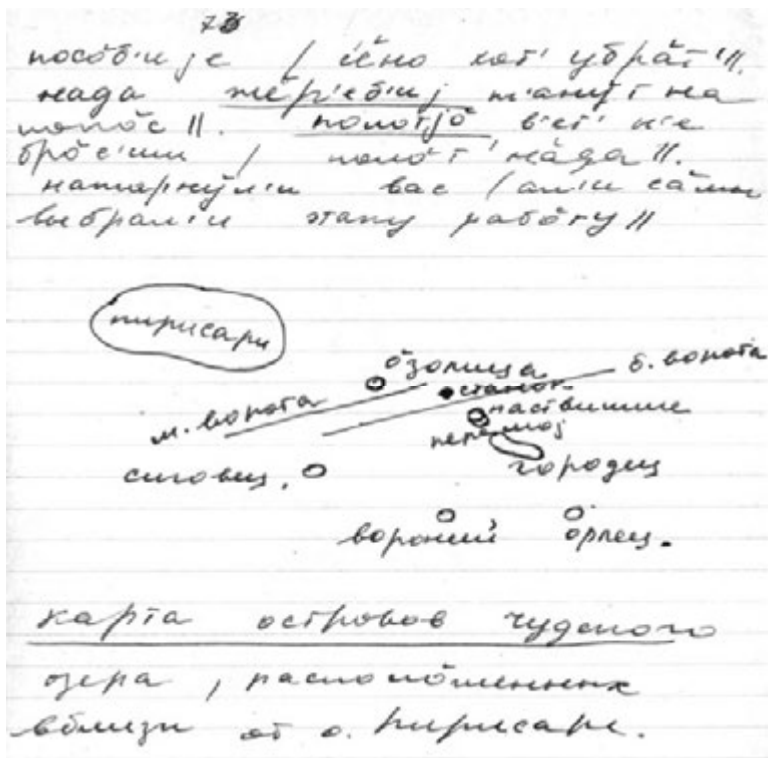 73
пособ'и је / с'е́но хот' убра́т'॥.
нада же́р'еб'иј т'а́нут на
попо́с॥. полотјо́ в'ет' н'е
бро́с'иш / поло́т' на́да॥.
нат'арну́л'и вас / ал'и са́ми
выбрал'и этану рабо́ту॥
пирисари
озолица
б. ворота
м. ворота
станок
наствишше
перемој
сиговец.
городец
вороний орлец.
карта островов чудского
озера, расположенных
вблизи от о. Пирисари.